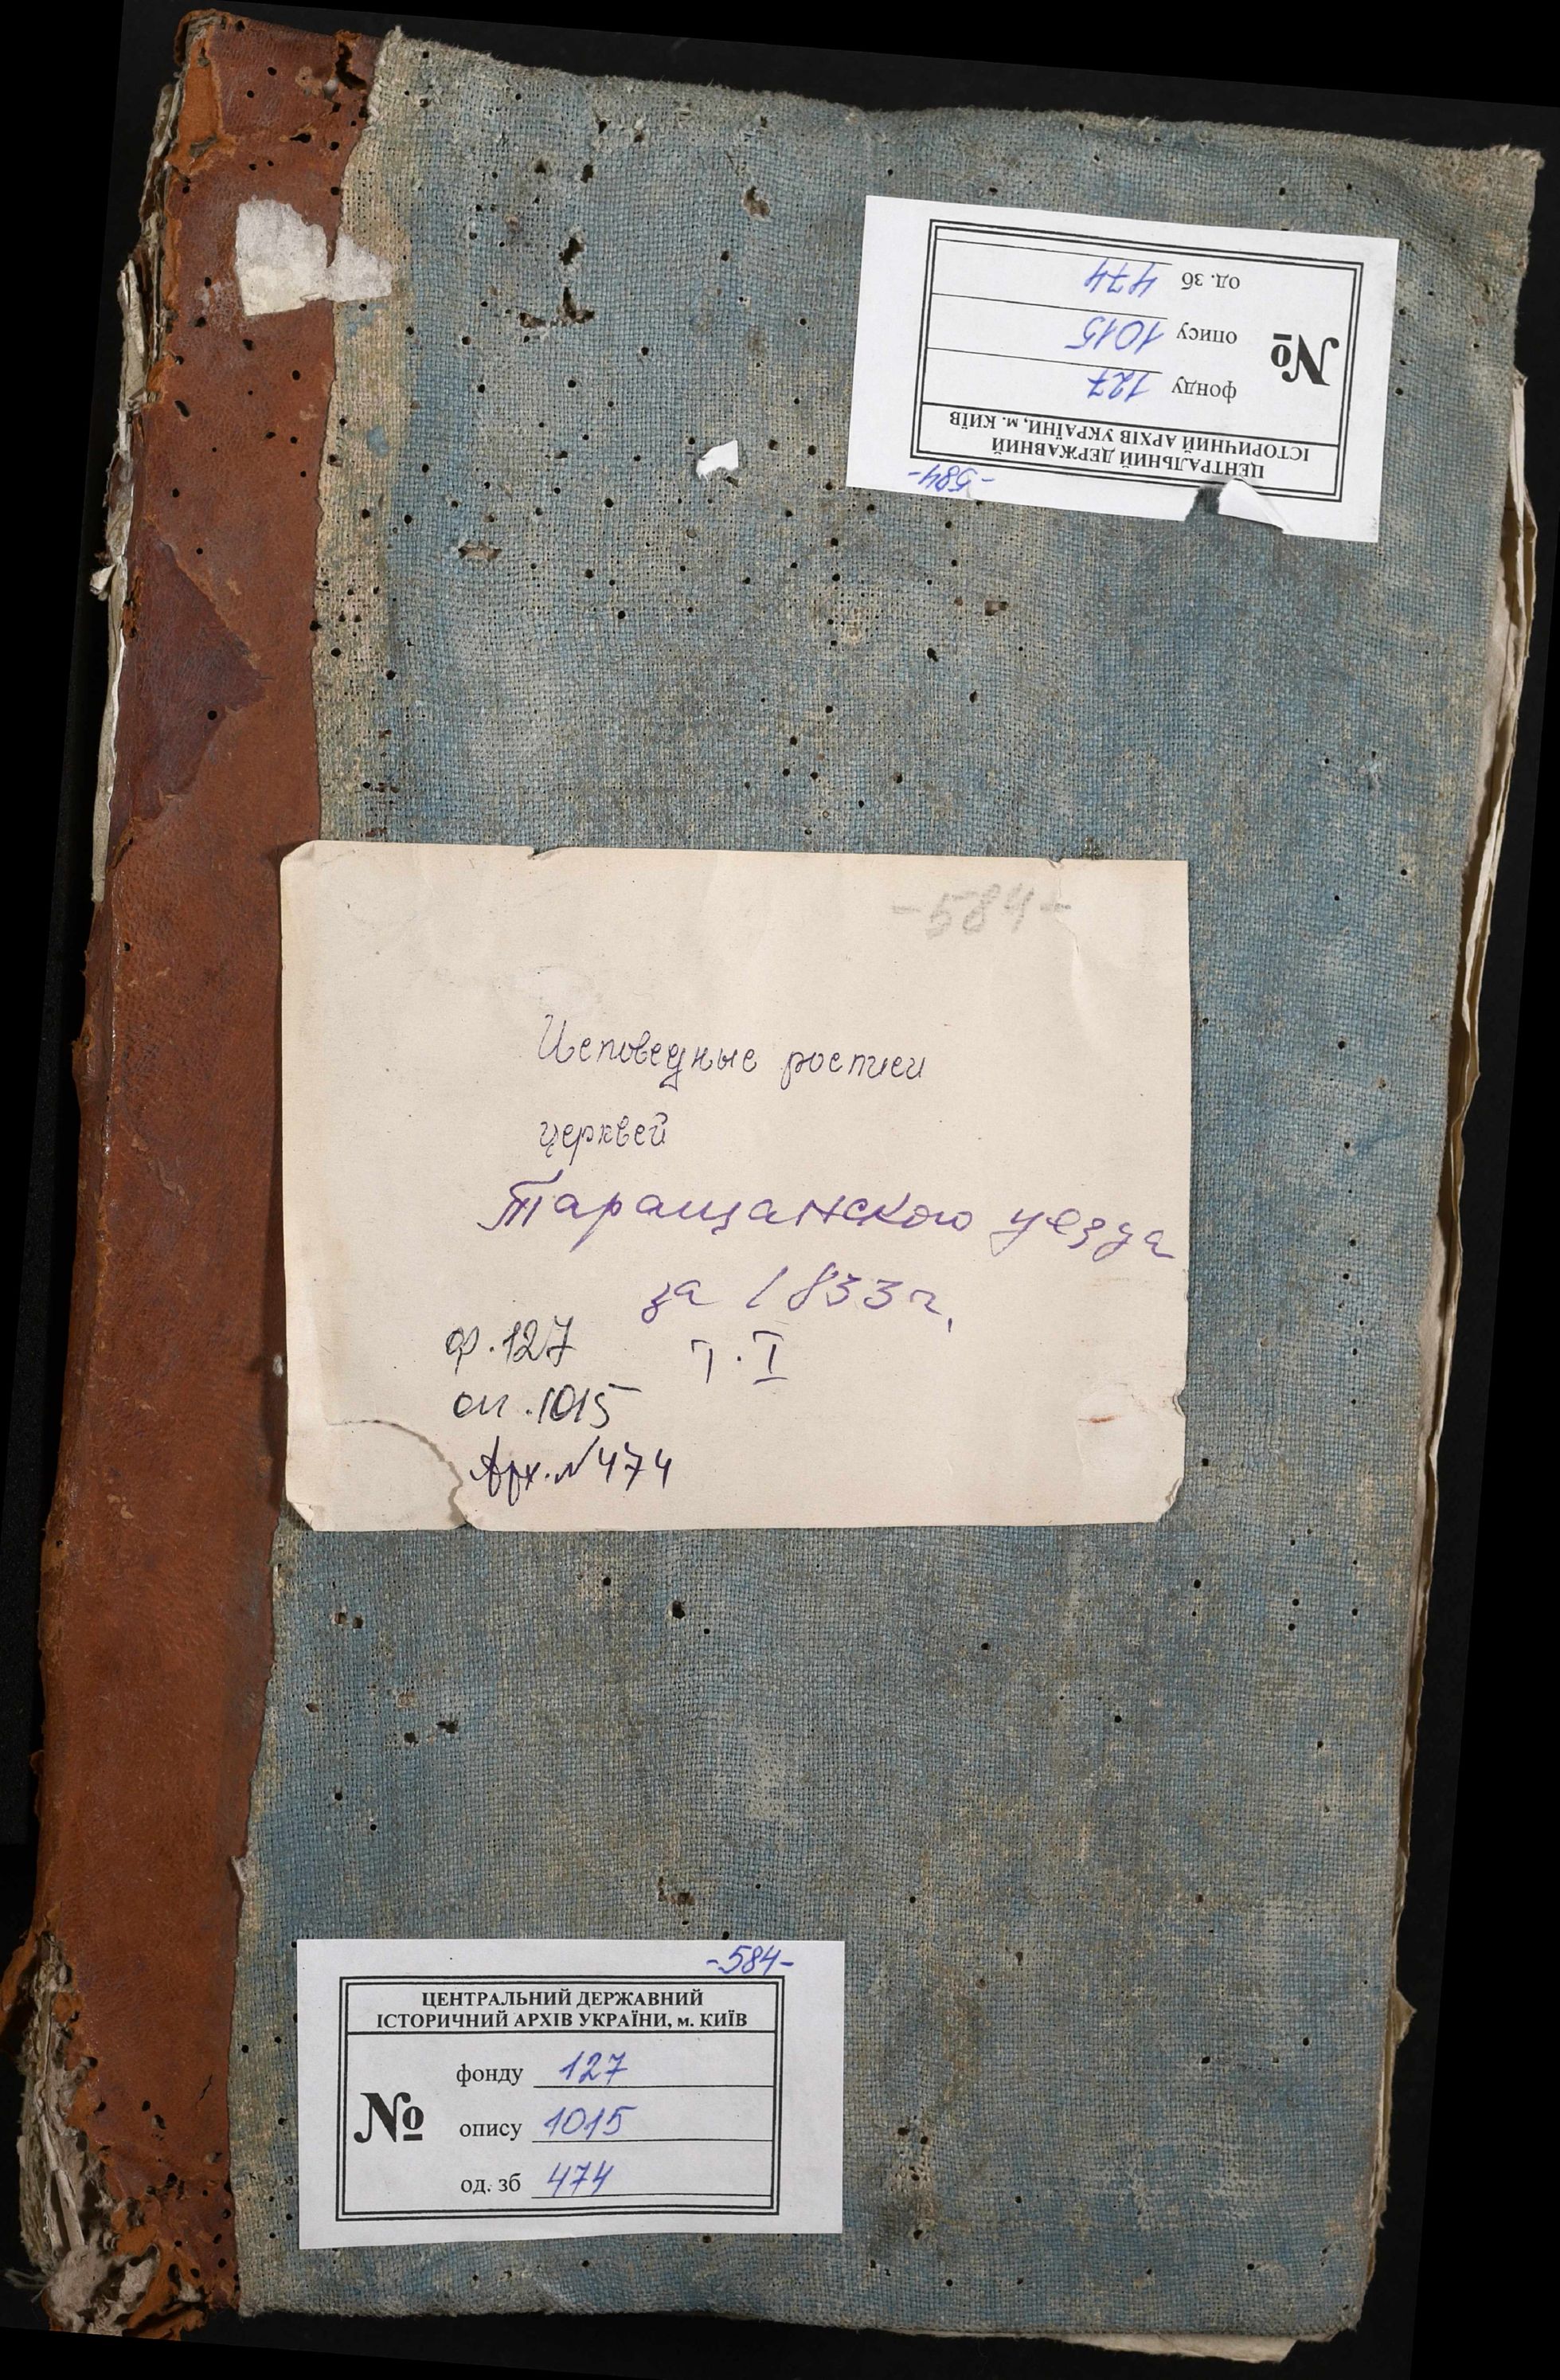 -584-
ЦЕНТРАЛЬНИЙ ДЕРЖАВНИЙ
ІСТОРИЧНИЙ АРХІВ УКРАЇНИ, м. КИЇВ
№
фонду 127
опису 1015
од. зб 474
-584-
Исповедные росписи
церквей
Таращанского уезда
за 1833 г.
ф. 127 т. I
оп. 1015
Арх. № 474
-584-
ЦЕНТРАЛЬНИЙ ДЕРЖАВНИЙ
ІСТОРИЧНИЙ АРХІВ УКРАЇНИ, м. КИЇВ
№
фонду 127
опису 1015
од. зб 474